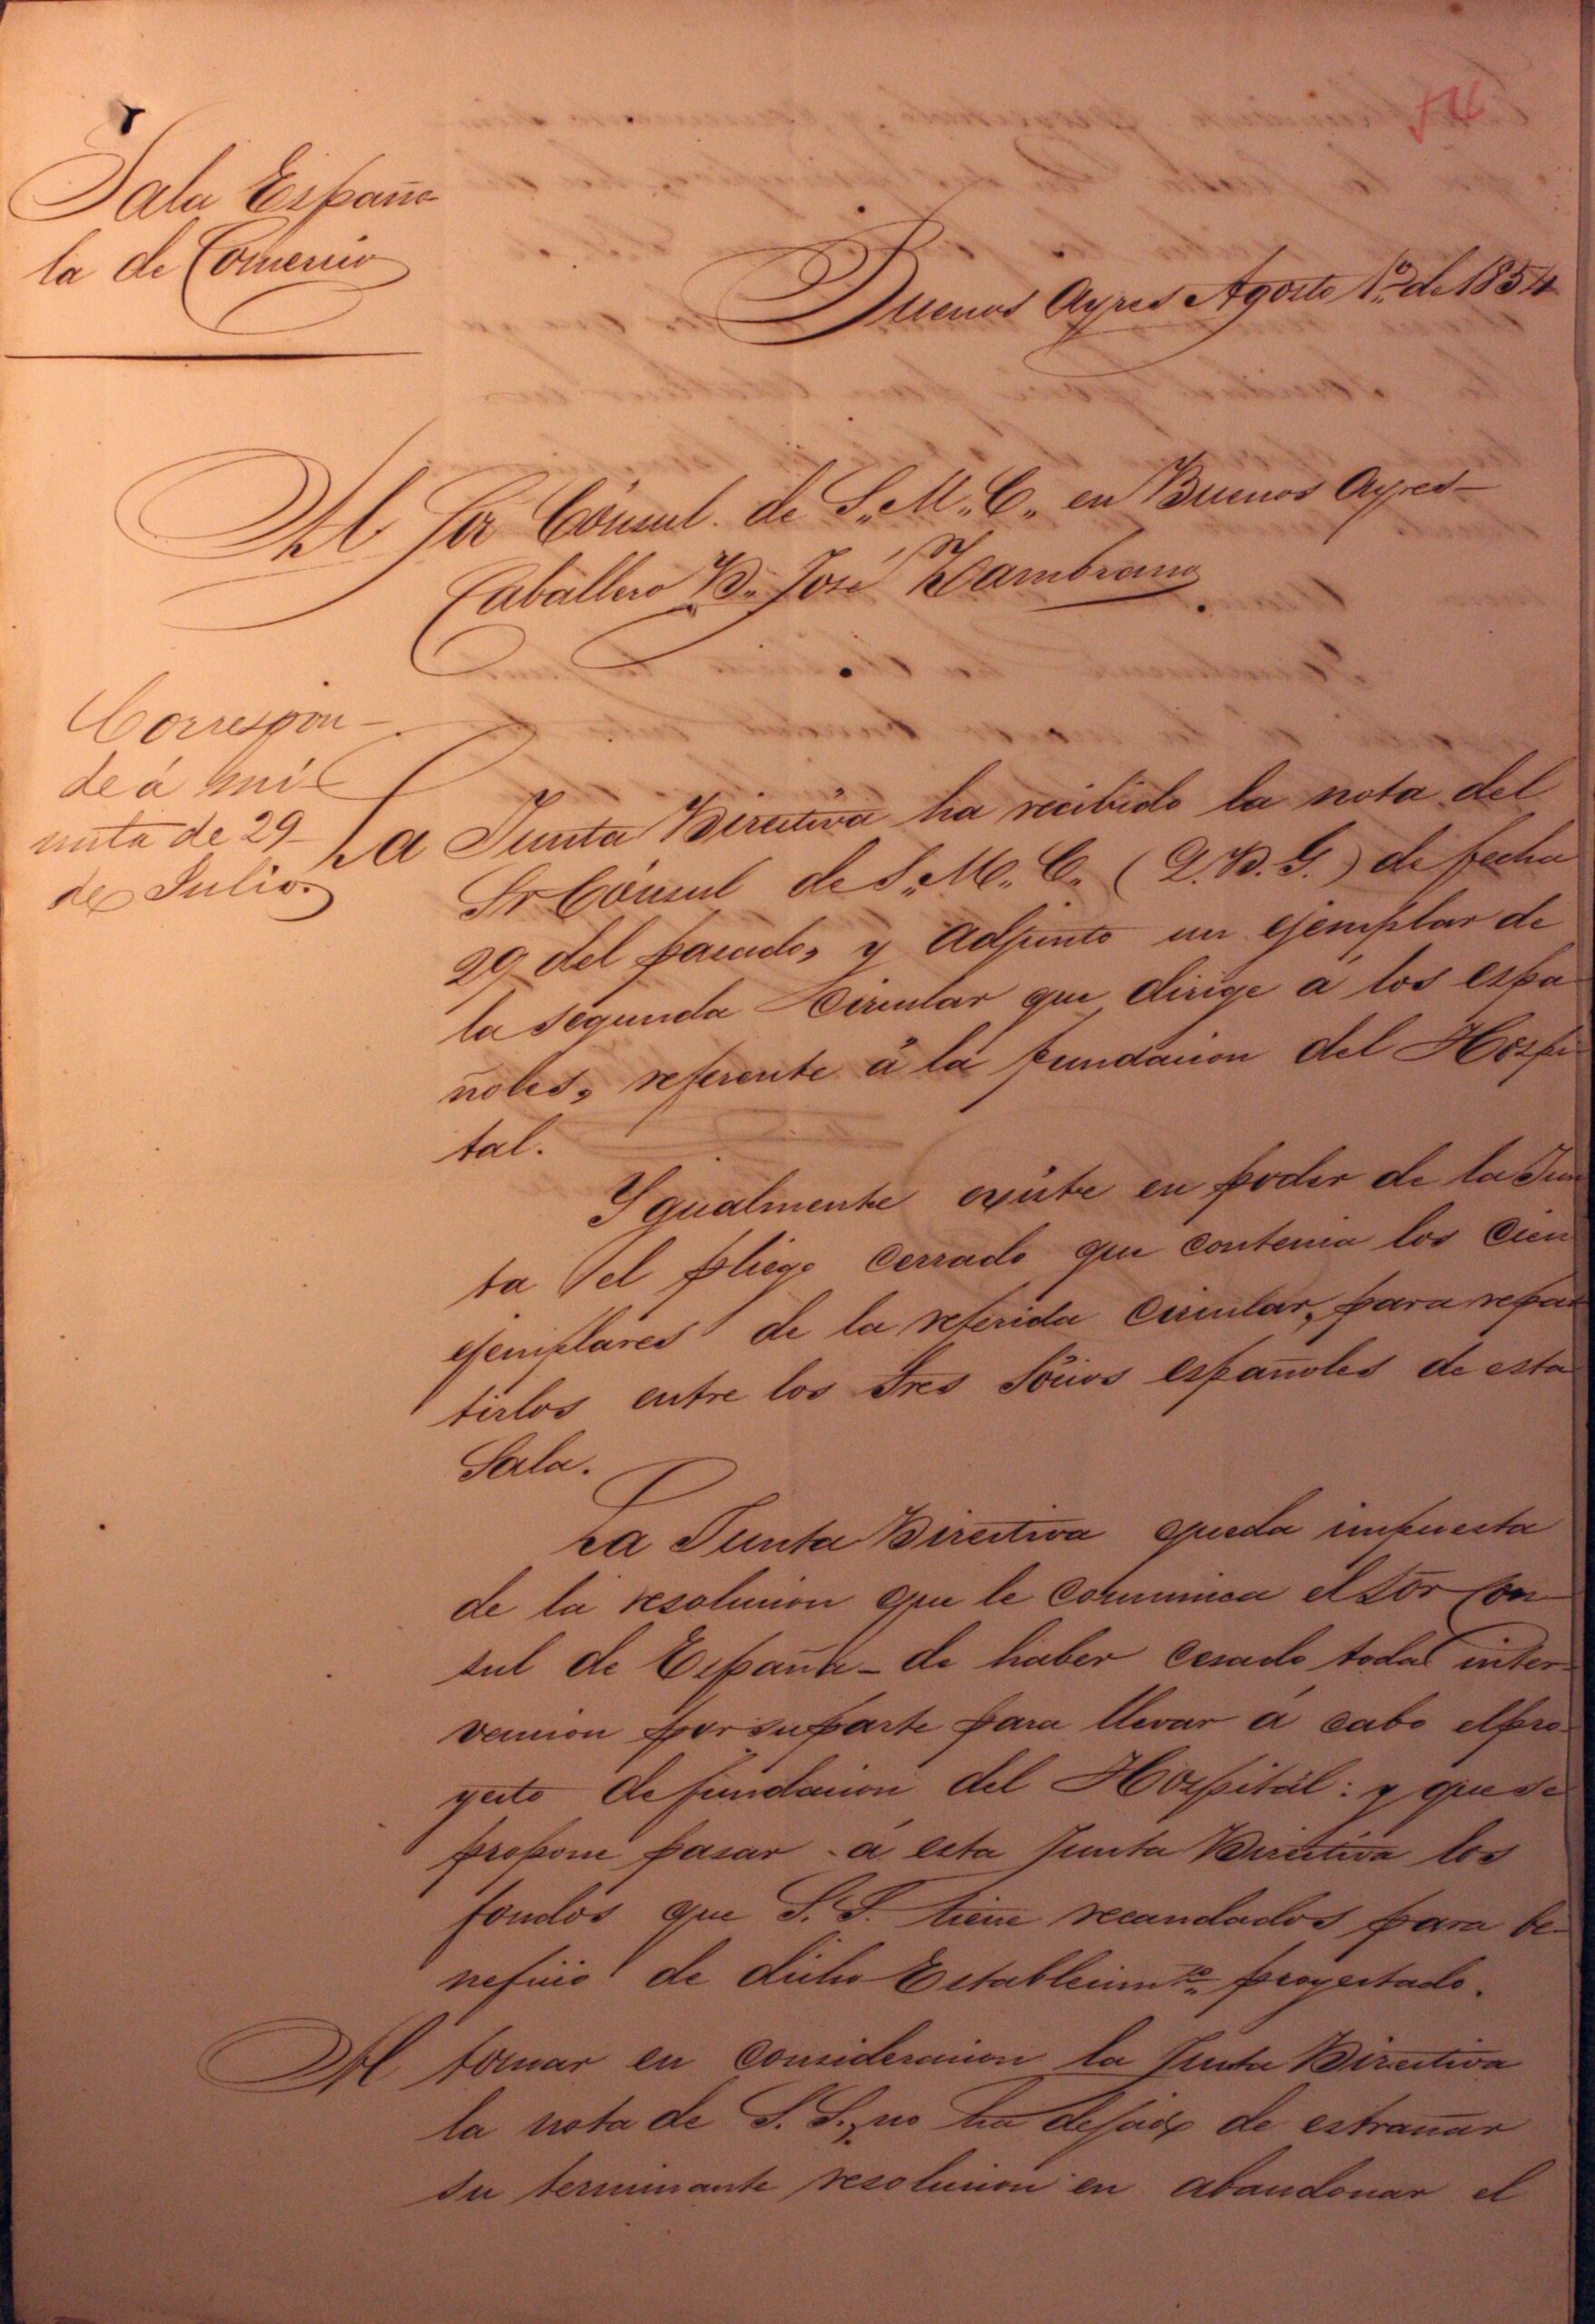 54
Sala Españo
la de Comercio
Buenos Ayres Agosto 1º de 1854
Al Sor Cónsul de S. M. C. en Buenos Ayres
Caballero D. José Zambrano.
Correspon-
de á mi
nuta de 29
de Julio.
La Junta Directiva ha recibido la nota del
Sr Cónsul de S. M. C. (Q. D. G.) de fecha
29 del pasado, y adjunto un ejemplar de
la segunda Circular que dirige á los espa
ñoles, referente á la fundacion del Hospi
tal.
Ygualmente existe en poder de la Jun
ta el pliego cerrado que contenia los cien
ejemplares de la referida circular, para repar
tirlos entre los Sres Sócios españoles de esta
Sala.
La Junta Directiva queda impuesta
de la resolucion que le comunica el Sor Con
sul de España - de haber cesado toda inter-
vencion por su parte para llevar á cabo el pro-
yecto de fundacion del Hospital: y que se
propone pasar á esta Junta Directiva los
fondos que S. S. tiene recaudados para be-
neficio de dicho Establecimto proyectado.
Al tomar en consideracion la Junta Directiva
la nota de S. S., no ha dejado de estrañar
su terminante resolucion en abandonar el